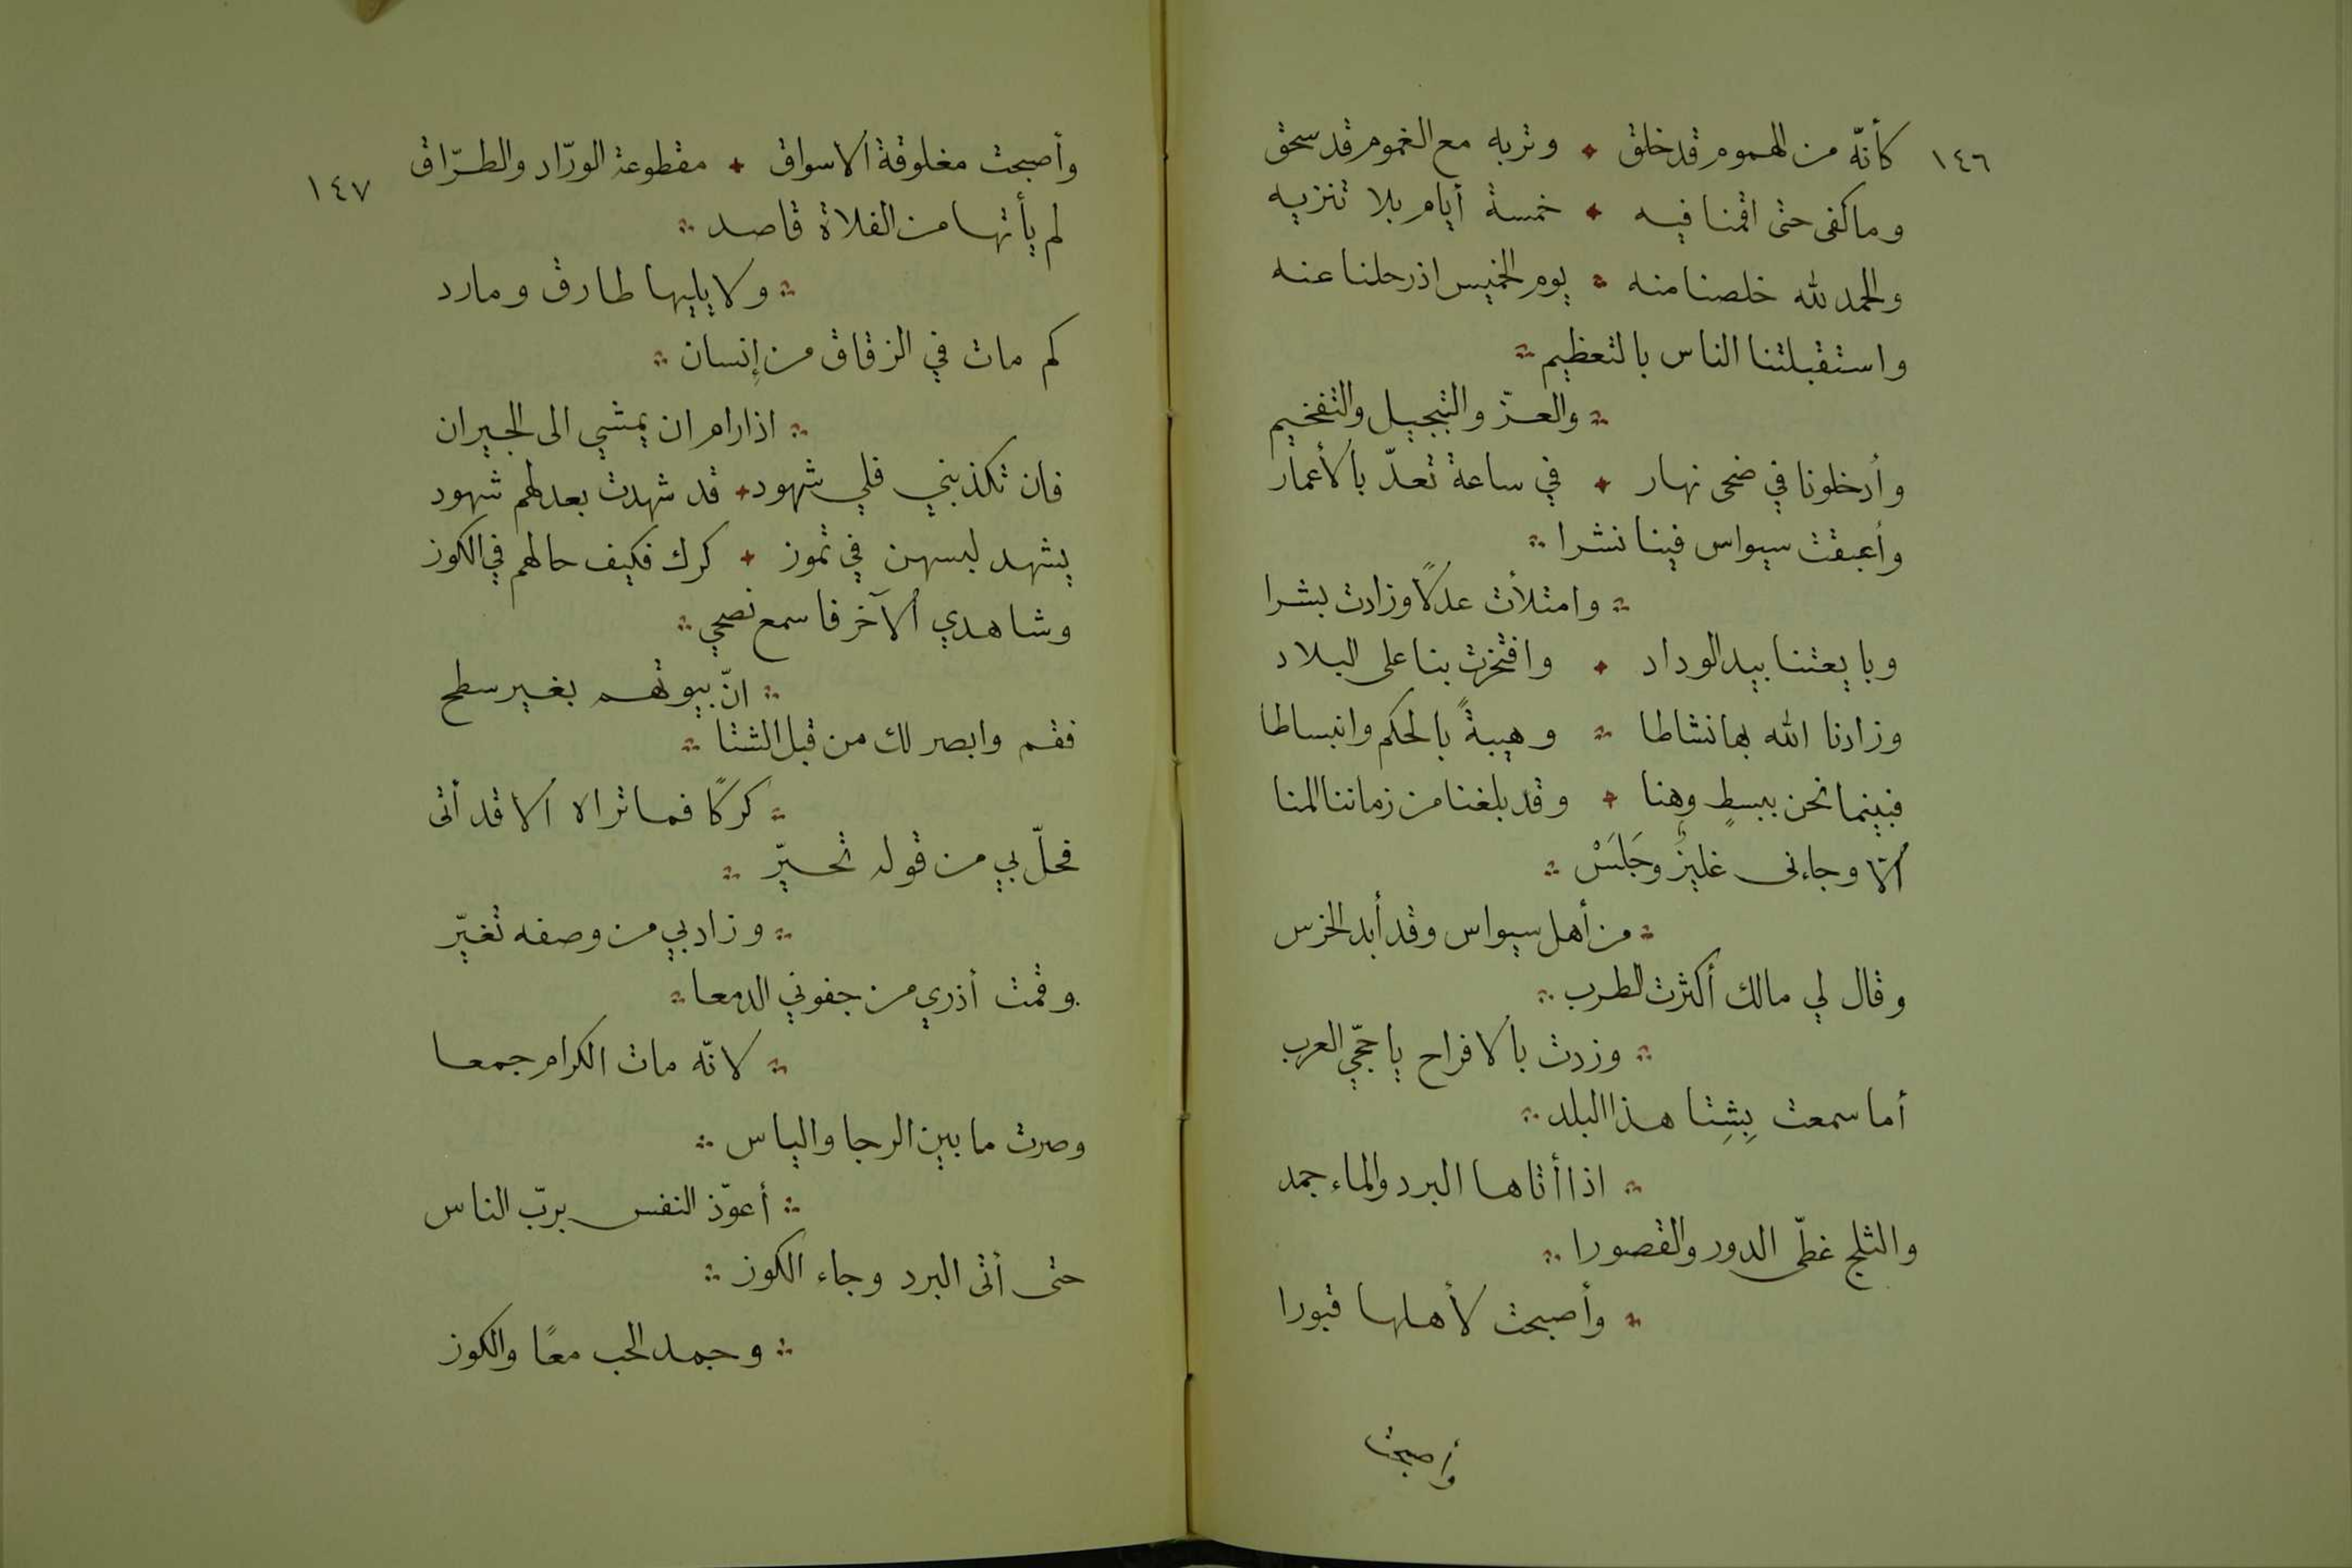 ١٤٦
كأنّه من الهموم قد خلق ٭ وتربه مع الغموم قد سحق
وما كفى حتى اقمنا فيه ٭ خمسة أيام بلا تنزيه
والحمد لله خلصنا منه ؞ يوم الخميس اذ رحلنا عنه
واستقبلتنا الناس بالتعظيم ؞
؞ والعزّ والتبجيل والتفخيم
وأدخلونا في ضحى نهار ٭ في ساعة تعدّ بالأعمار
وأعبقت سيواس فينا نشرا ؞
؞ وامتلأت عدلًا وزادت بشرا
وبايعتنا بيد الوداد ٭ وافتخرت بنا على البلاد
وزادنا الله بها نشاطا ؞ وهيبةً بالحكم وانبساطا
فبينما نحن ببسطٍ وهنا ٭ وقد بلغنا من زماننا المنا
الّا وجاءنى غليزٌ وجَلَسْ ؞
؞ من أهل سيواس وقد أبد الخرس
وقال لي مالك أكثرت الطرب ؞
؞ وزدت بالافراح يا حجّي العرب
أما سمعت بِشِتا هذا البلد ؞
؞ اذا أتاها البرد والماء جمد
والثلج غطّى الدور والقصورا ؞
؞ وأصبحت لأهلها قبورا
وأصبحت
١٤٧
وأصبحت مغلوقة الاسواق ٭ مقطوعة الورّاد والطرّاق
لم يأتها من الفلاة قاصد ؞
؞ ولا يليها طارق ومارد
كم مات في الزقاق من إنسان ؞
؞ اذا رام ان يمشي الى الجيران
فان تكذبني فلي شهود ٭ قد شهدت بعدلهم شهود
يشهد لبسهن في تموز ٭ كرك فكيف حالهم في الكوز
وشاهدي الآخر فاسمع نصحي ؞
؞ انّ بيوتهم بغير سطح
فقم وابصر لك من قبل الشتا ؞
؞ كركًا فما تراه الا قد أتى
فحلّ بي من قوله تحيّر ؞
؞ وزاد بي من وصفه تغيّر
وقمت أذري من جفوني الدمعا ؞
؞ لانّه مات الكرام جمعا
وصرت ما بين الرجا والياس ؞
؞ أعوّذ النفس بربّ الناس
حتى أتى البرد وجاء الكوز ؞
؞ وجمد الحب معًا والكوز